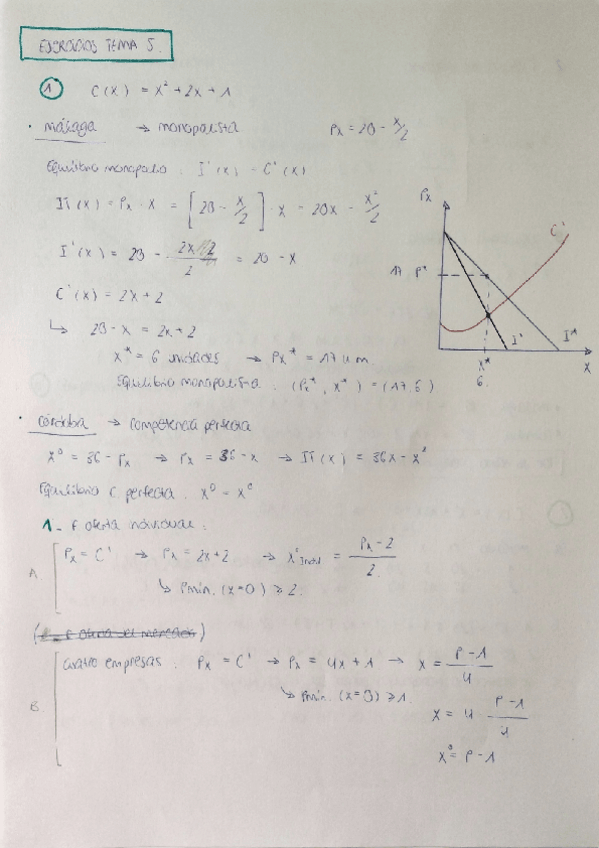 EJERCICIOS TEMA 5.
1 C(X) = X² + 2X + 1
· Málaga → monopolista Px = 20 - X/2
Equilibrio monopolio : I'(X) = C'(X)
IT(X) = Px · X = [20 - X/2] · X = 20X - X²/2
I'(X) = 20 - 2X/2 = 20 - X
C'(X) = 2X + 2
↳ 20 - X = 2X + 2
X* = 6 unidades → Px* = 17 u m
Equilibrio monopolista : (Px*, X*) = (17, 6)
Px
C'
17 P*
I' I*
X* X
6
· Córdoba → competencia perfecta
X^D = 36 - Px → Px = 36 - X → IT(X) = 36X - X²
Equilibrio C. perfecta : X^D = X^o
1_ F oferta individual :
A. Px = C' → Px = 2X + 2 → X^o Indvl = Px - 2 / 2
↳ Pmin. (X=0) ≥ 2
B. Cuatro empresas : Px = C' → Px = 4X + 1 → X = P - 1 / 4
↳ Pmin. (X=0) ≥ 1
X = 4 · P - 1 / 4
X^o = P - 1